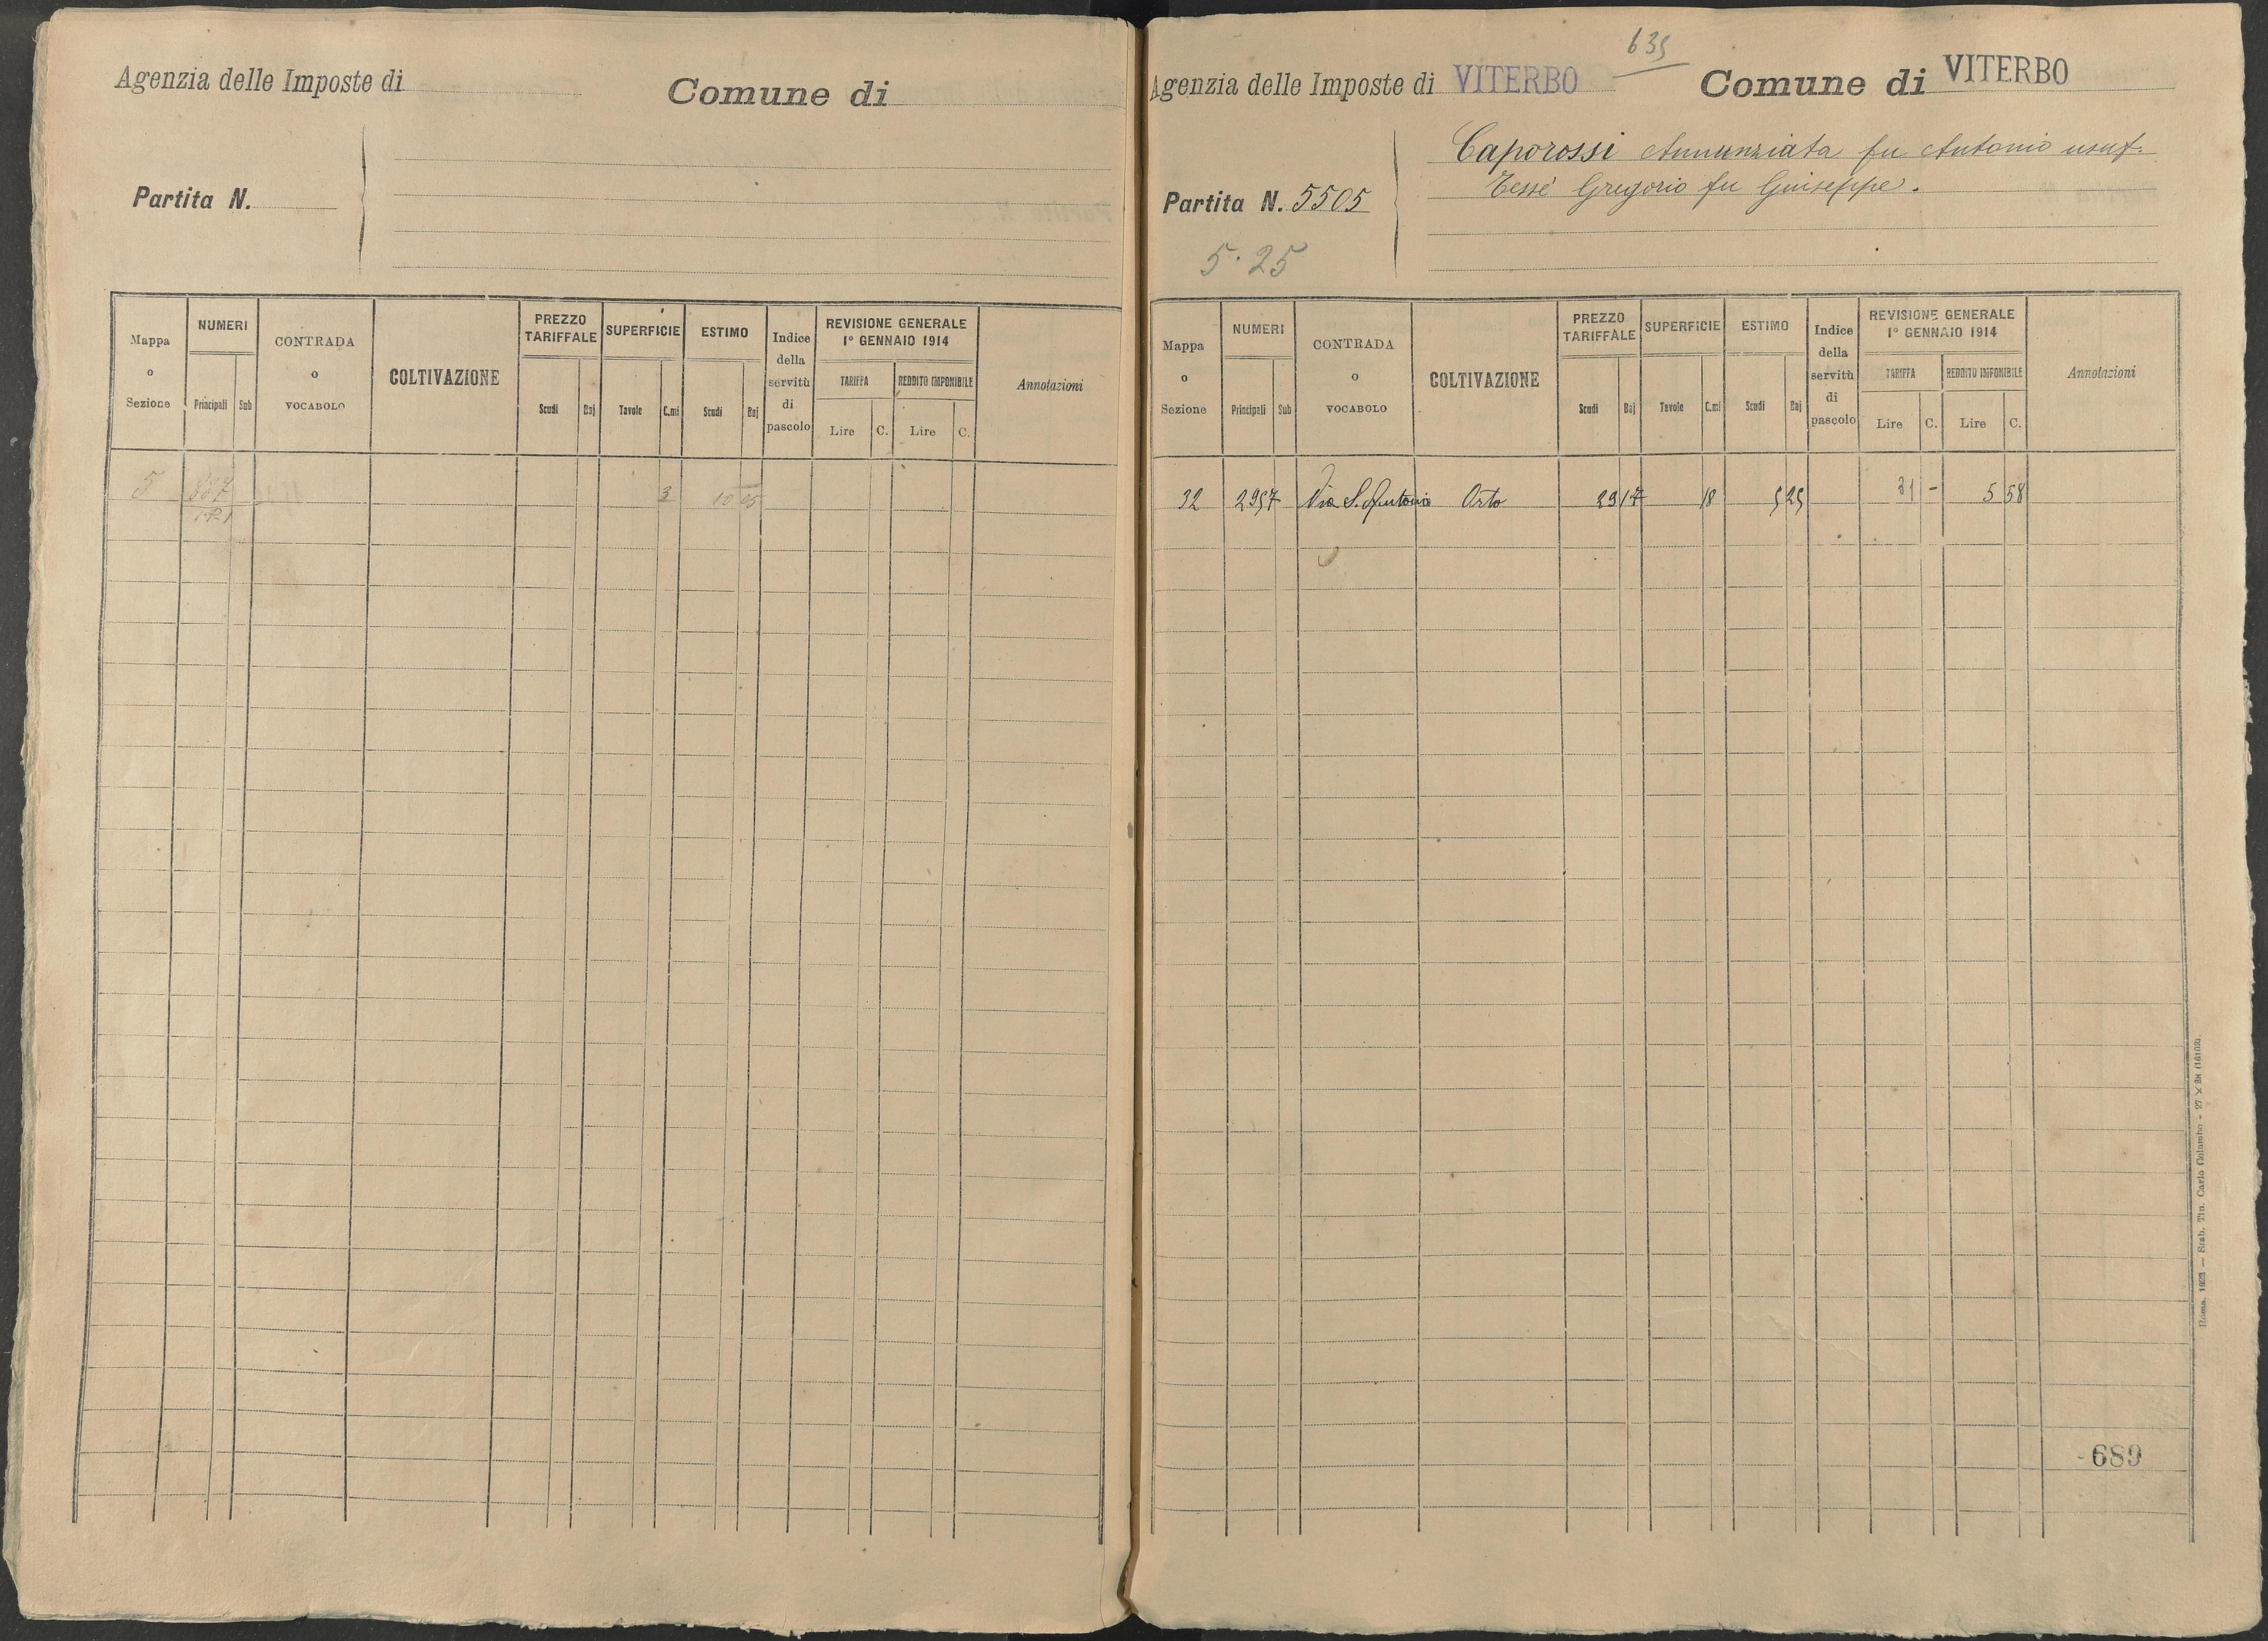 Agenzia delle Imposte di
Comune di
Partita N.
Mappa o Sezione
NUMERI
Principali
Sub
CONTRADA o VOCABOLO
COLTIVAZIONE
PREZZO TARIFFALE
Scudi
Baj
SUPERFICIE
Tavole
C.mi
ESTIMO
Scudi
Baj
Indice della servitù di pascolo
REVISIONE GENERALE
1° GENNAIO 1914
TARIFFA
Lire
C.
REDDITO IMPONIBILE
Lire
C.
Annotazioni
5 3 10 05
635
Agenzia delle Imposte di VITERBO
Comune di VITERBO
Caporossi Annunziata fu Antonio usuf.
Partita N. 5505
Tessè Gregorio fu Giuseppe.
5.25
Mappa o Sezione
NUMERI
Principali
Sub
CONTRADA o VOCABOLO
COLTIVAZIONE
PREZZO TARIFFALE
Scudi
Baj
SUPERFICIE
Tavole
C.mi
ESTIMO
Scudi
Baj
Indice della servitù di pascolo
REVISIONE GENERALE
1° GENNAIO 1914
TARIFFA
Lire
C.
REDDITO IMPONIBILE
Lire
C.
Annotazioni
32 2957 Via S. Antonio Orto 29 17 18 5 25 31 - 5 58
-689
Roma, 1923 — Stab. Tip. Carlo Colombo - 27 × 38